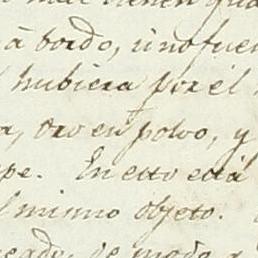 tienen
á bordo, ú no fue
hubiera por él
oro en polvo, y
pe. En esto está
mismo objeto.
de modo